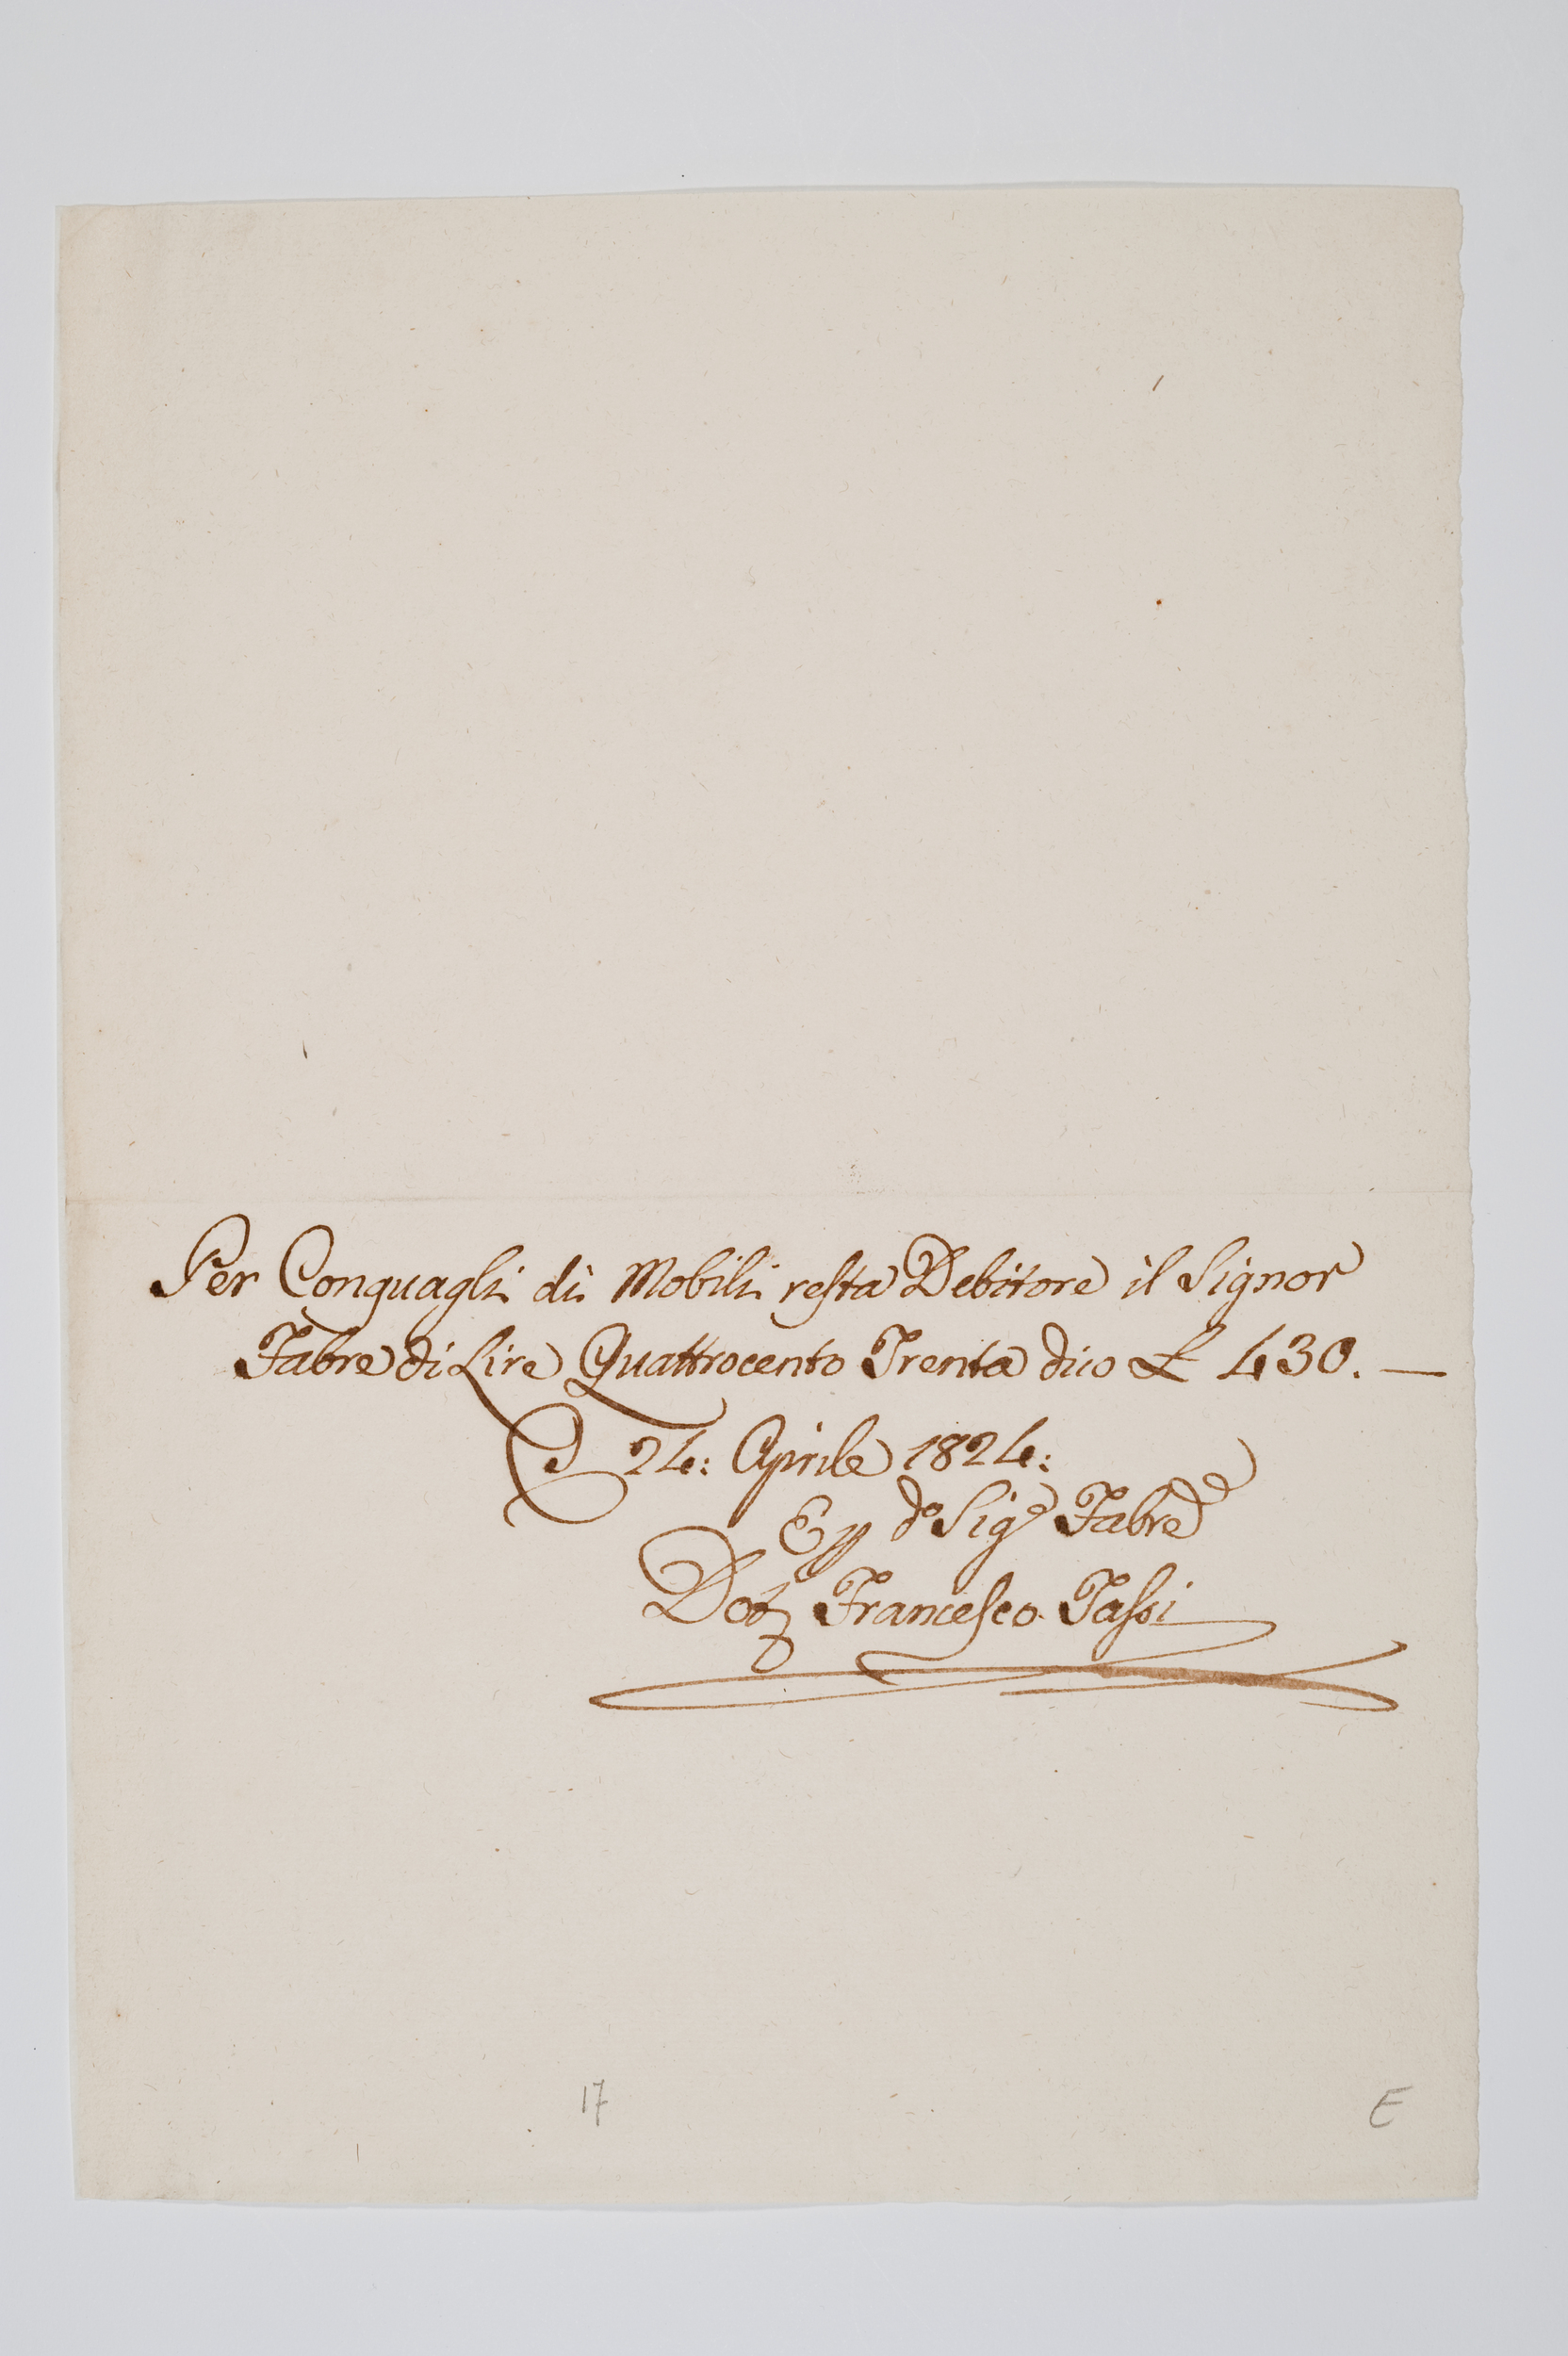 Per Conguagli di Mobili resta Debitore il Signor
Fabre di Lire Quattrocento Trenta dico £ 430. —
24: Aprile 1824:
Sig.e Fabre
Dot Francesco Tassi
17
E